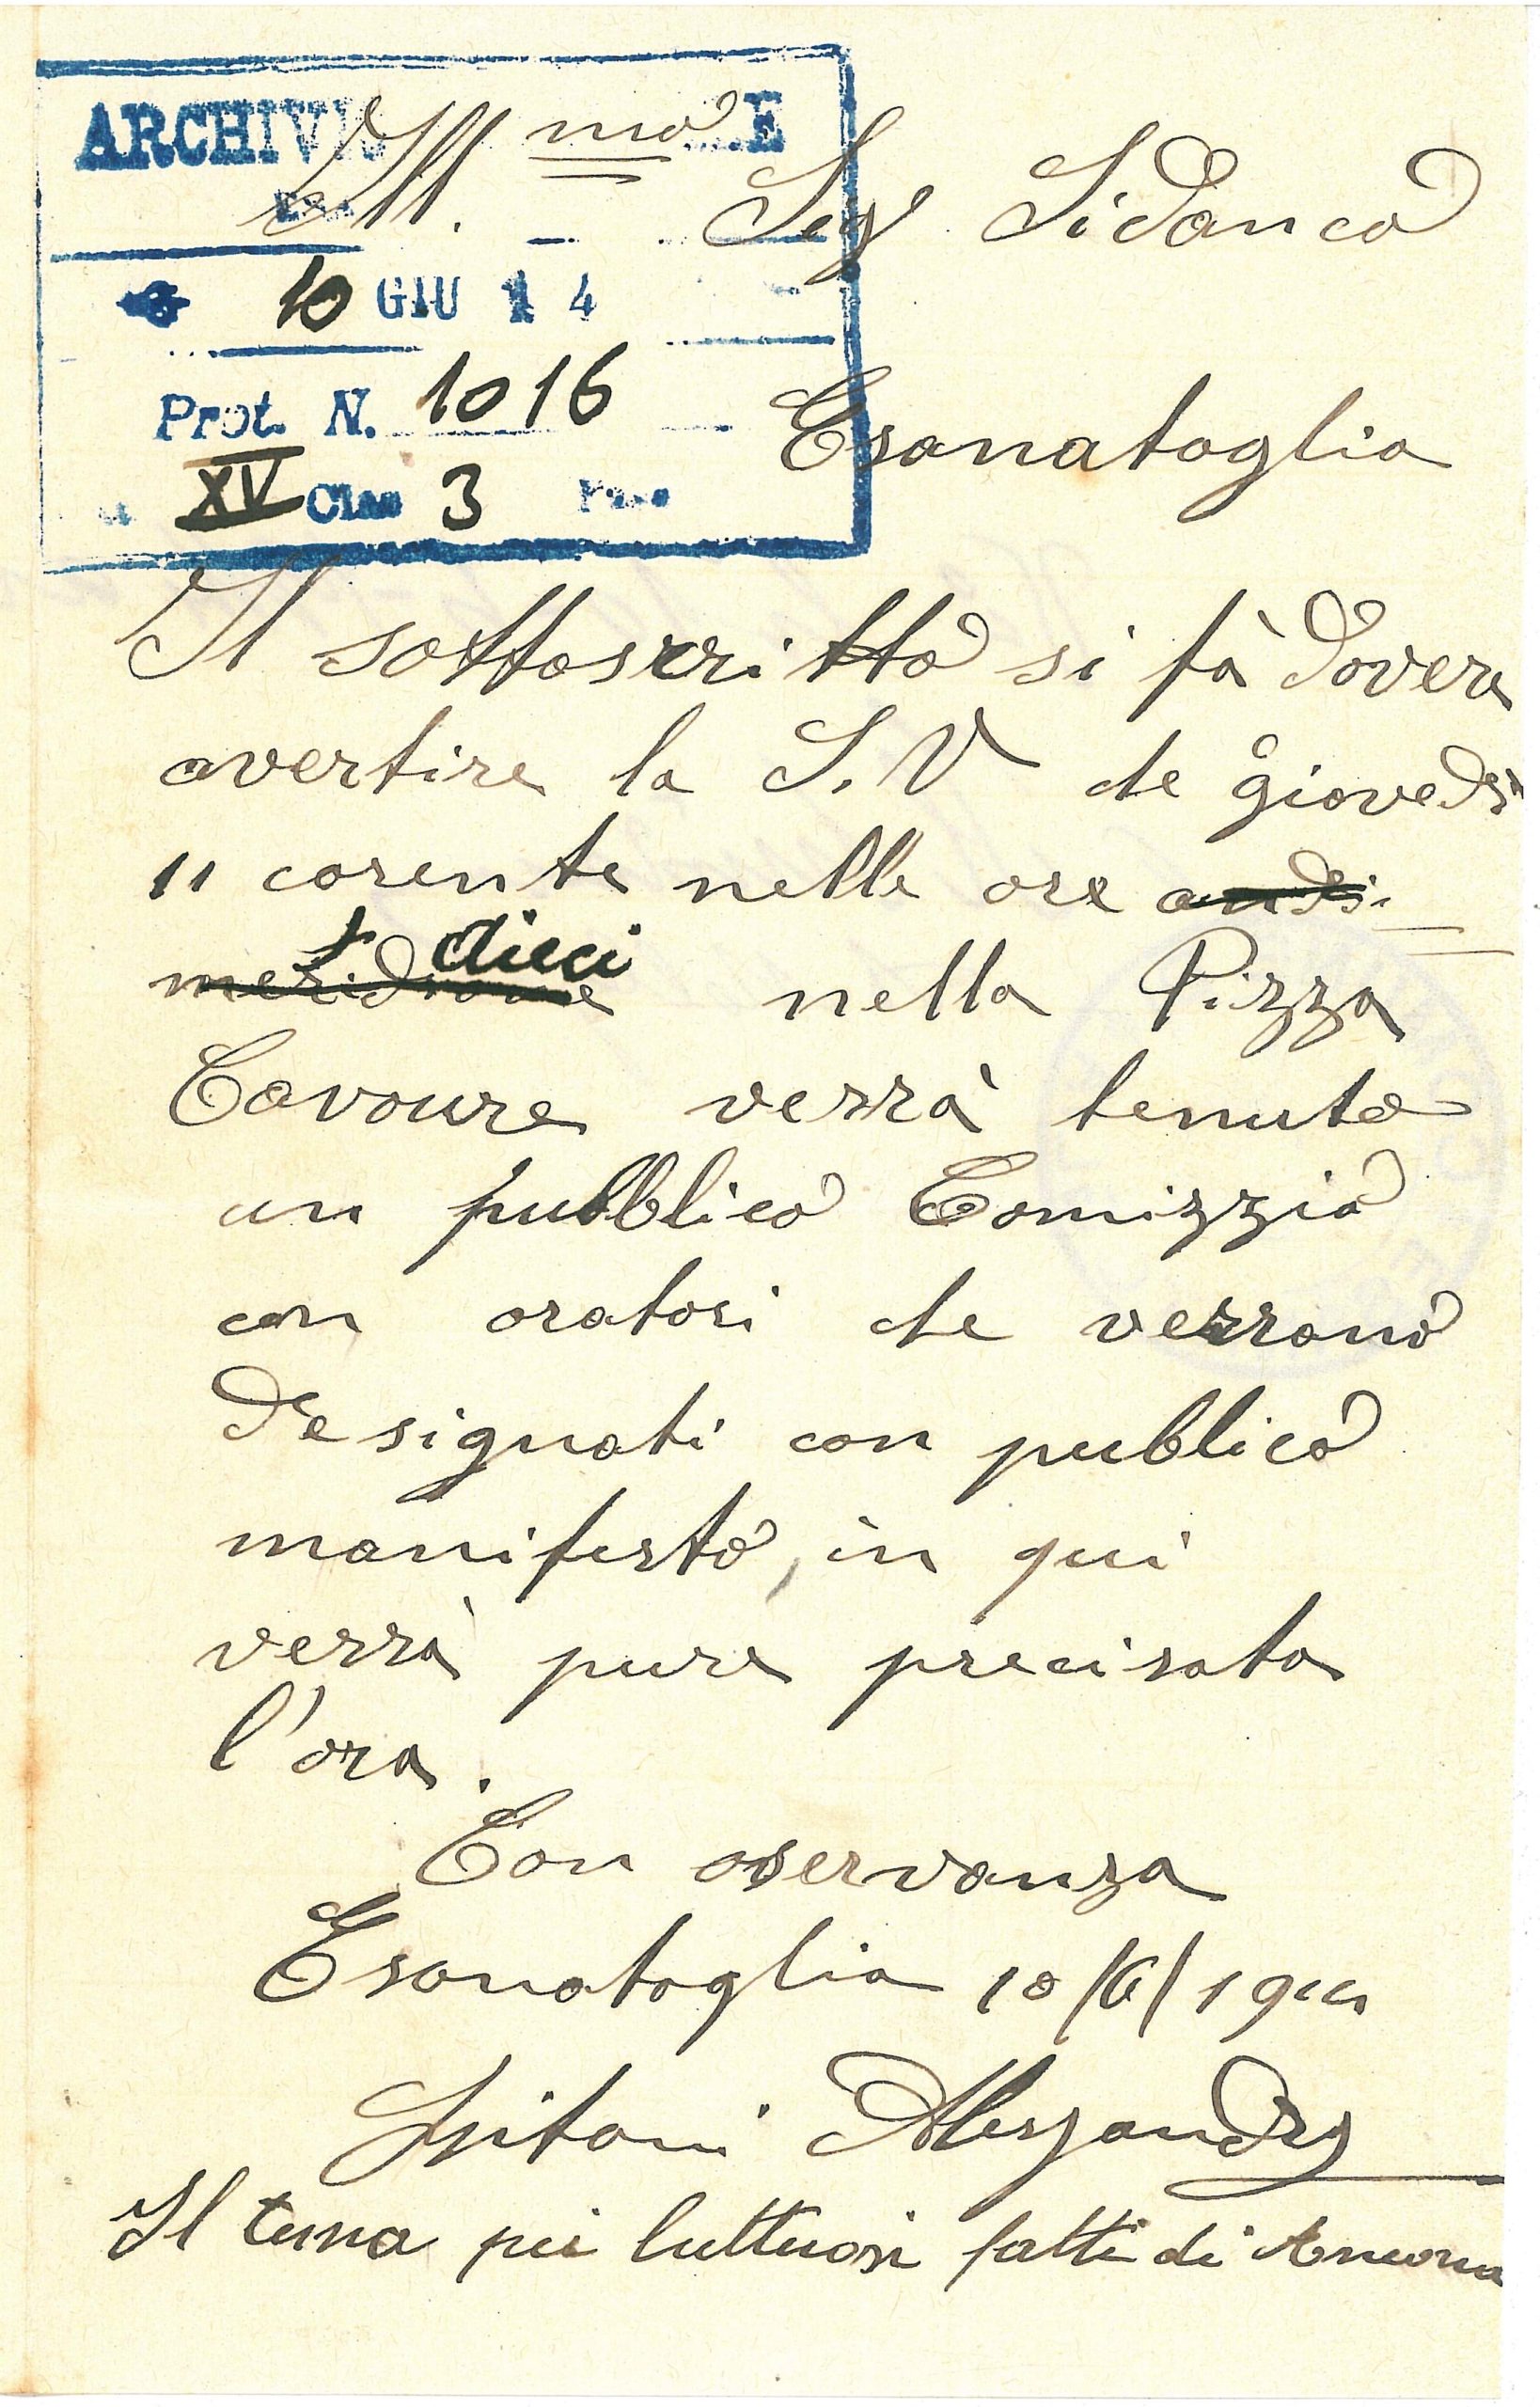 ARCHIVIO E
Ill.mo Sig Sidanco
10 GIU 14
Prot. N. 1016
Esanatoglia
XV Clas 3
Il sottoscritto si fà dovere
avertire la S. V che giovedi
11 corente nelle ore andi-
dieci
meridiane nella Pizza
Cavoure verrà tenuto
un pubblico Comizzio
con oratori che verrano
designati con publico
manifesto, in qui
verrà pure precisata
l'ora.
Con oservanza
Esanatoglia 10/6/1914
Spitoni Alessandro
Il tema pei luttuosi fatti di Ancona